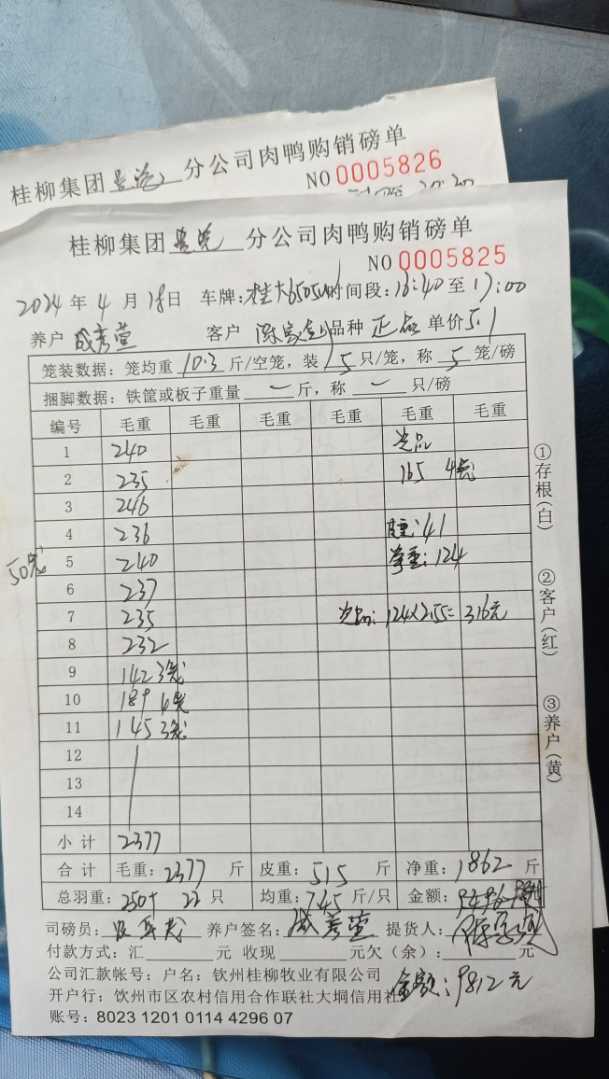 桂柳集团 分公司肉鸭购销磅单
NO 0005826
桂柳集团 分公司肉鸭购销磅单
NO 0005825
2024 年 4 月 18 日 车牌: 桂 时间段: 16:40 至 17:00
养户 客户 品种 正品 单价 5.1
笼装数据: 笼均重 10.3 斤/空笼, 装 15 只/笼, 称 5 笼/磅
捆脚数据: 铁筐或板子重量 一 斤, 称 一 只/磅
编号 毛重 毛重 毛重 毛重 毛重 毛重
1 240
2 235 165 4笼
3 246
4 236 皮重: 41
50笼 5 240 净重: 124
6 237
7 235 124×2.55= 316元
8 232
9 142 3笼
10 189 6笼
11 145 3笼
12
13
14
小计 2377
合计 毛重: 2377 斤 皮重: 515 斤 净重: 1862 斤
总羽重: 250 只 均重: 7.45 斤/只 金额:
司磅员: 养户签名: 提货人:
付款方式: 汇 元 收现 元欠(余): 元
公司汇款帐号: 户名: 钦州桂柳牧业有限公司
金额: 9812元
开户行: 饮州市区农村信用合作联社大垌信用社
账号: 8023 1201 0114 4296 07
①存根(白)
②客户(红)
③养户(黄)